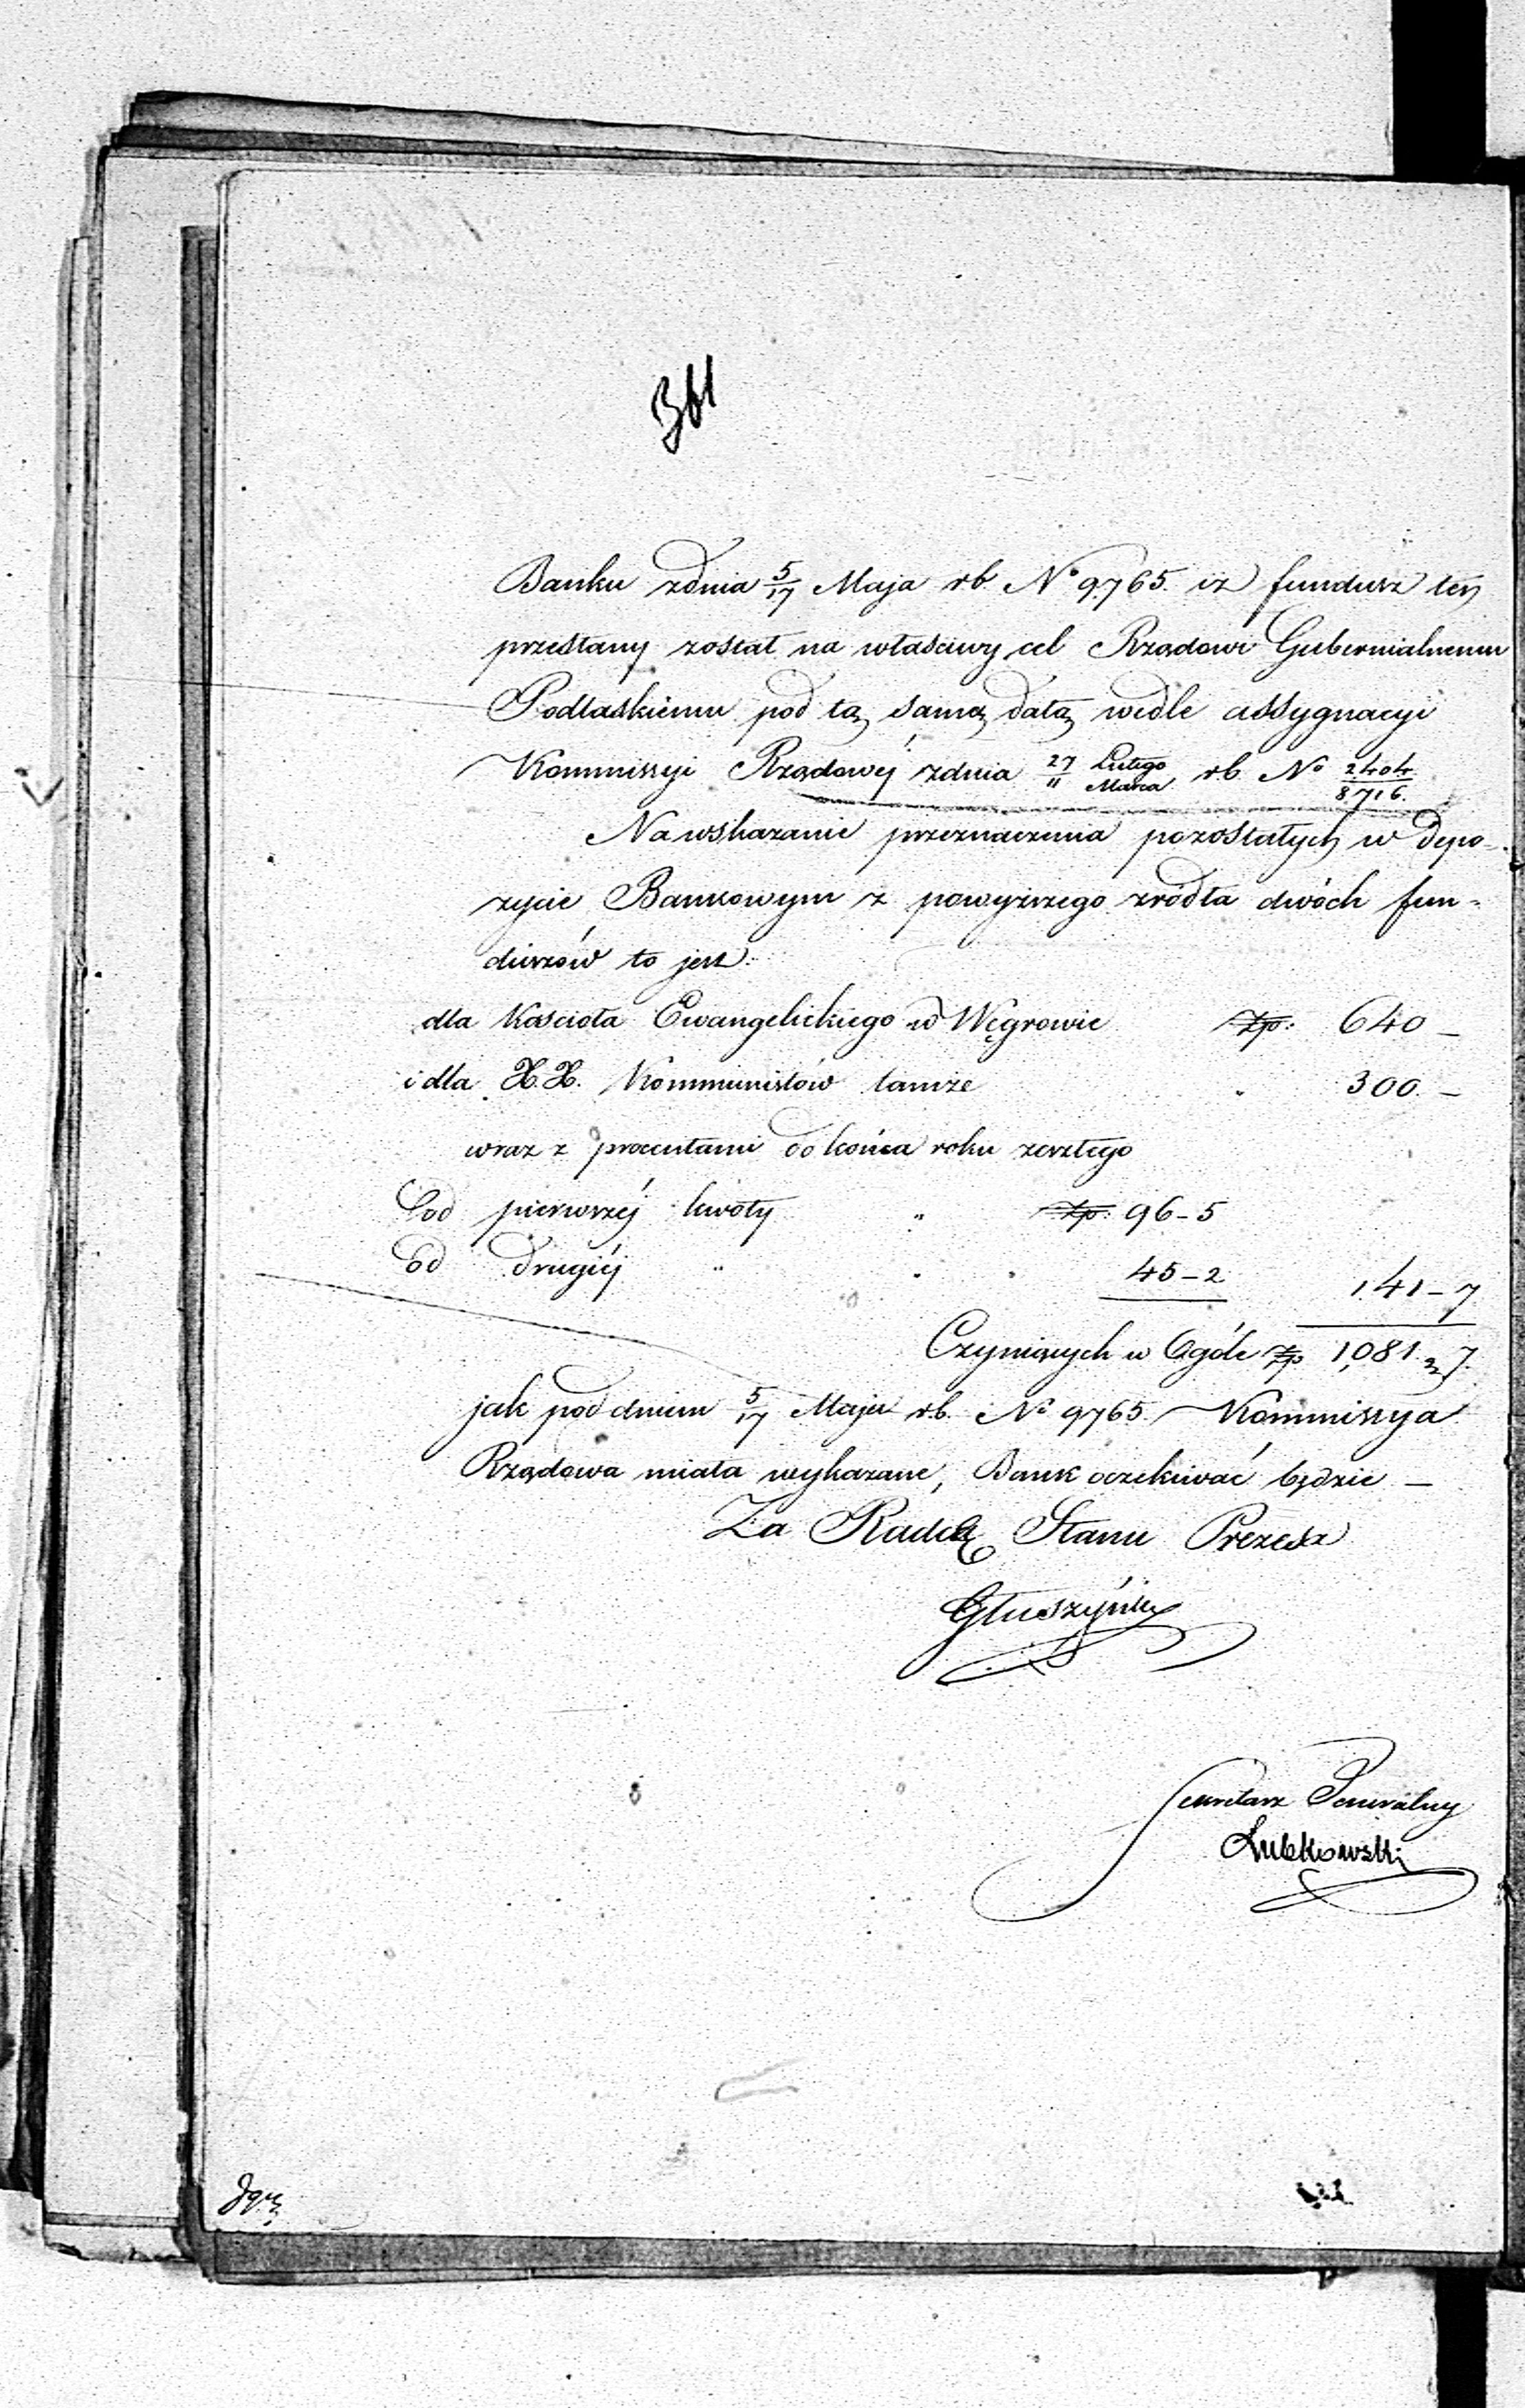 361
Banku zdnia 5/17 Maja r.b. No 9765. iż fundusz ten
przesłany został na właściwy cel Rządowi Gubernialnemu
Podlaskiemu pod tą samą datą wedle assygnacyi
Kommissyi Rządowéj zdnia 27 Lutego/11 Marca r.b. No 2404/8716.
Na wskazanie przeznaczenia pozostałych w depo-
zycie Bankowym z powyższego zródła dwóch fun-
duszów to jest:
dla Kościoła Ewangelickiego w Węgrowie Zp: 640 —
i dla X.X. Kommunistów tamże " 300. —
wraz z procentami do końca roku zeszłego
Od pierwszéj kwoty " Zp: 96 - 5
Od drugiéj " " " 45 - 2 141 - 7
Czyniących w Ogóle Zp 1,081 " 7.
jak pod dniem 5/17 Maja r.b. No 9765 Kommissya
Rządowa miała wykazane, Bank oczekiwać będzie —
Za Radcę Stanu Prezesa
Głuszyński
Secretarz Generalny
Lubkowski